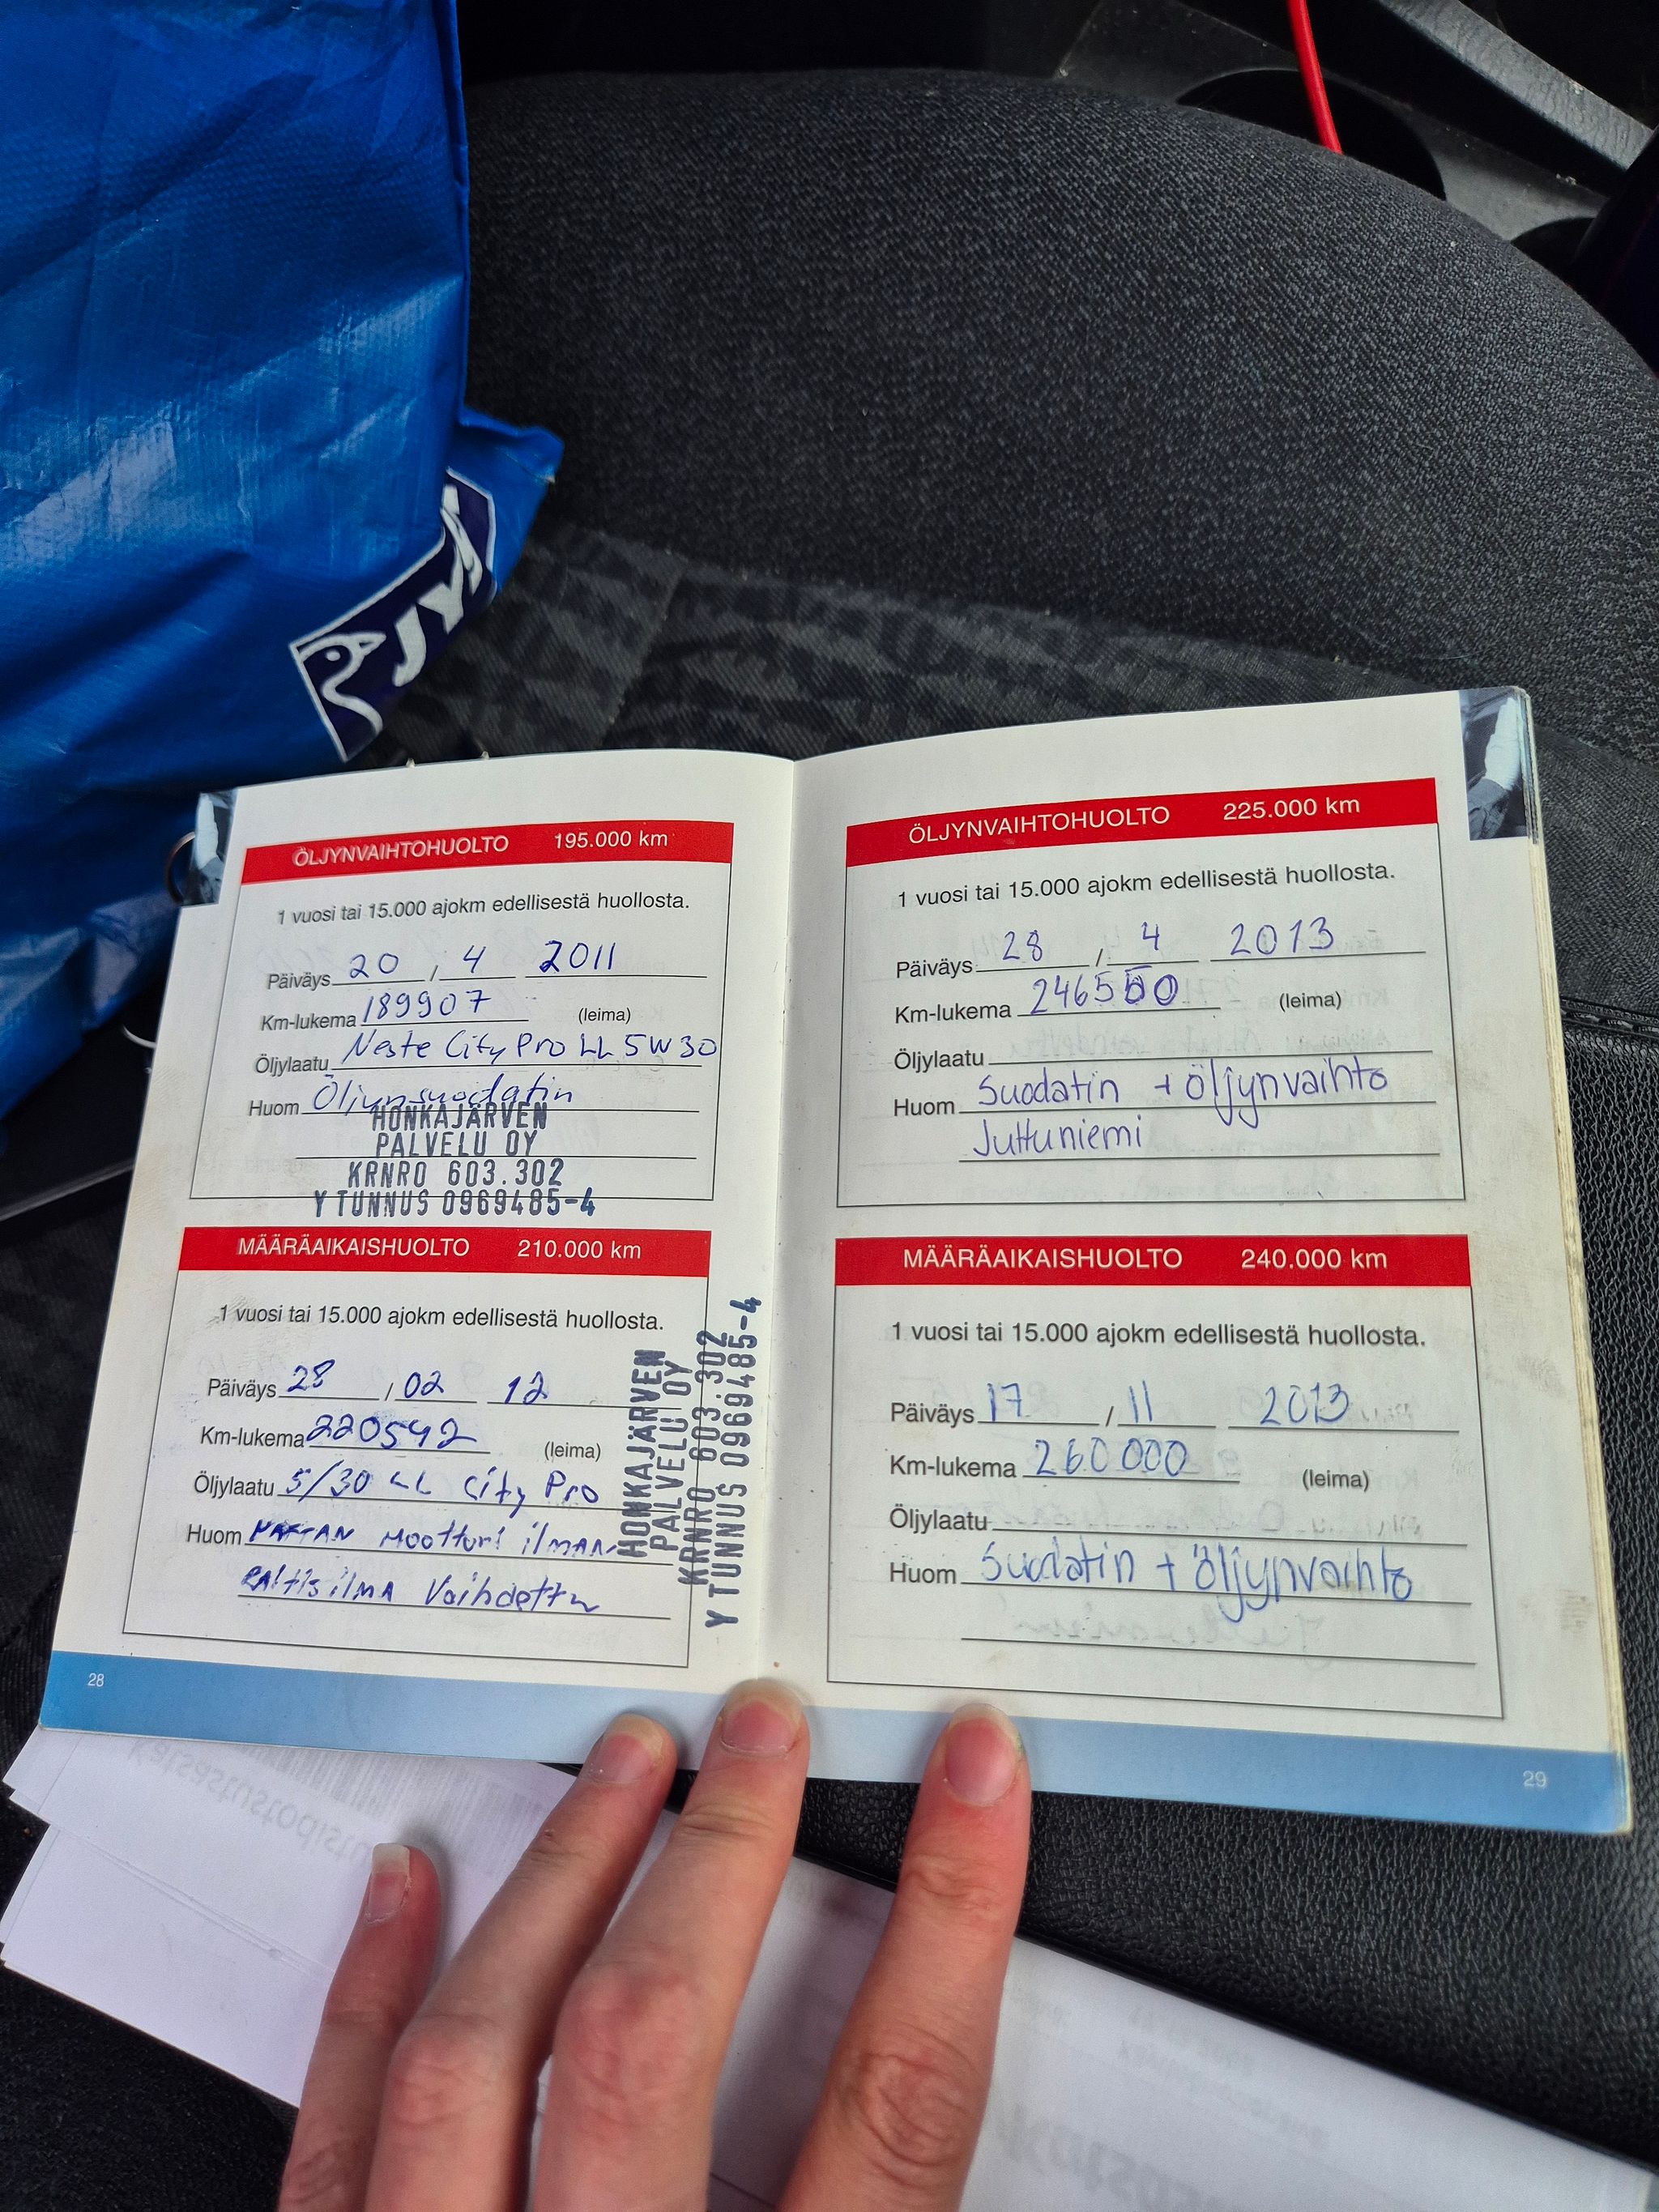 JYSK
ÖLJYNVAIHTOHUOLTO 195.000 km
1 vuosi tai 15.000 ajokm edellisestä huollosta.
Päiväys 20 / 4 2011
Km-lukema 189907 (leima)
Öljylaatu Neste City Pro LL 5W30
Huom Öljynsuodatin
HONKAJÄRVEN
PALVELU OY
KRNRO 603.302
Y TUNNUS 0969485-4
MÄÄRÄAIKAISHUOLTO 210.000 km
1 vuosi tai 15.000 ajokm edellisestä huollosta.
Päiväys 28 / 02 12
Km-lukema 220592 (leima)
Öljylaatu 5/30 LL City Pro
Huom moottori ilman
Raitisilma Vaihdettu
HONKAJÄRVEN
PALVELU OY
KRNRO 603.302
Y TUNNUS 0969485-4
28
ÖLJYNVAIHTOHUOLTO 225.000 km
1 vuosi tai 15.000 ajokm edellisestä huollosta.
Päiväys 28 / 4 2013
Km-lukema 246550 (leima)
Öljylaatu
Huom Suodatin + öljynvaihto
Juttuniemi
MÄÄRÄAIKAISHUOLTO 240.000 km
1 vuosi tai 15.000 ajokm edellisestä huollosta.
Päiväys 17 / 11 2013
Km-lukema 260000 (leima)
Öljylaatu
Huom Suodatin + öljynvaihto
29